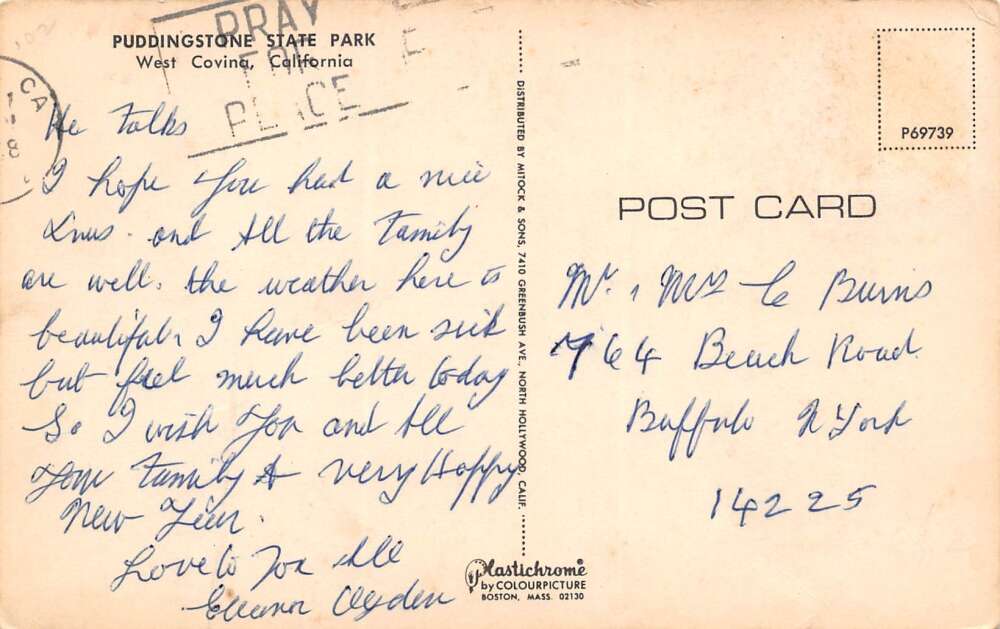 PUDDINGSTONE STATE PARK
West Covina, California
PRAY
FOR
PEACE
CA
He Folks
I hope you had a nice
Xmus. and All the Family
are well. the weather here is
beautiful. I have been sick
but feel much better today
So I wish You and All
Your Family A very Happy
New Year.
Love to You All
Eleanor
DISTRIBUTED BY MITOCK & SONS, 7410 GREENBUSH AVE., NORTH HOLLYWOOD, CALIF.
Plastichrome
by COLOURPICTURE
BOSTON, MASS. 02130
P69739
POST CARD
Mr. , Mrs C Burns
764 Beach Road
Buffalo N York
14225